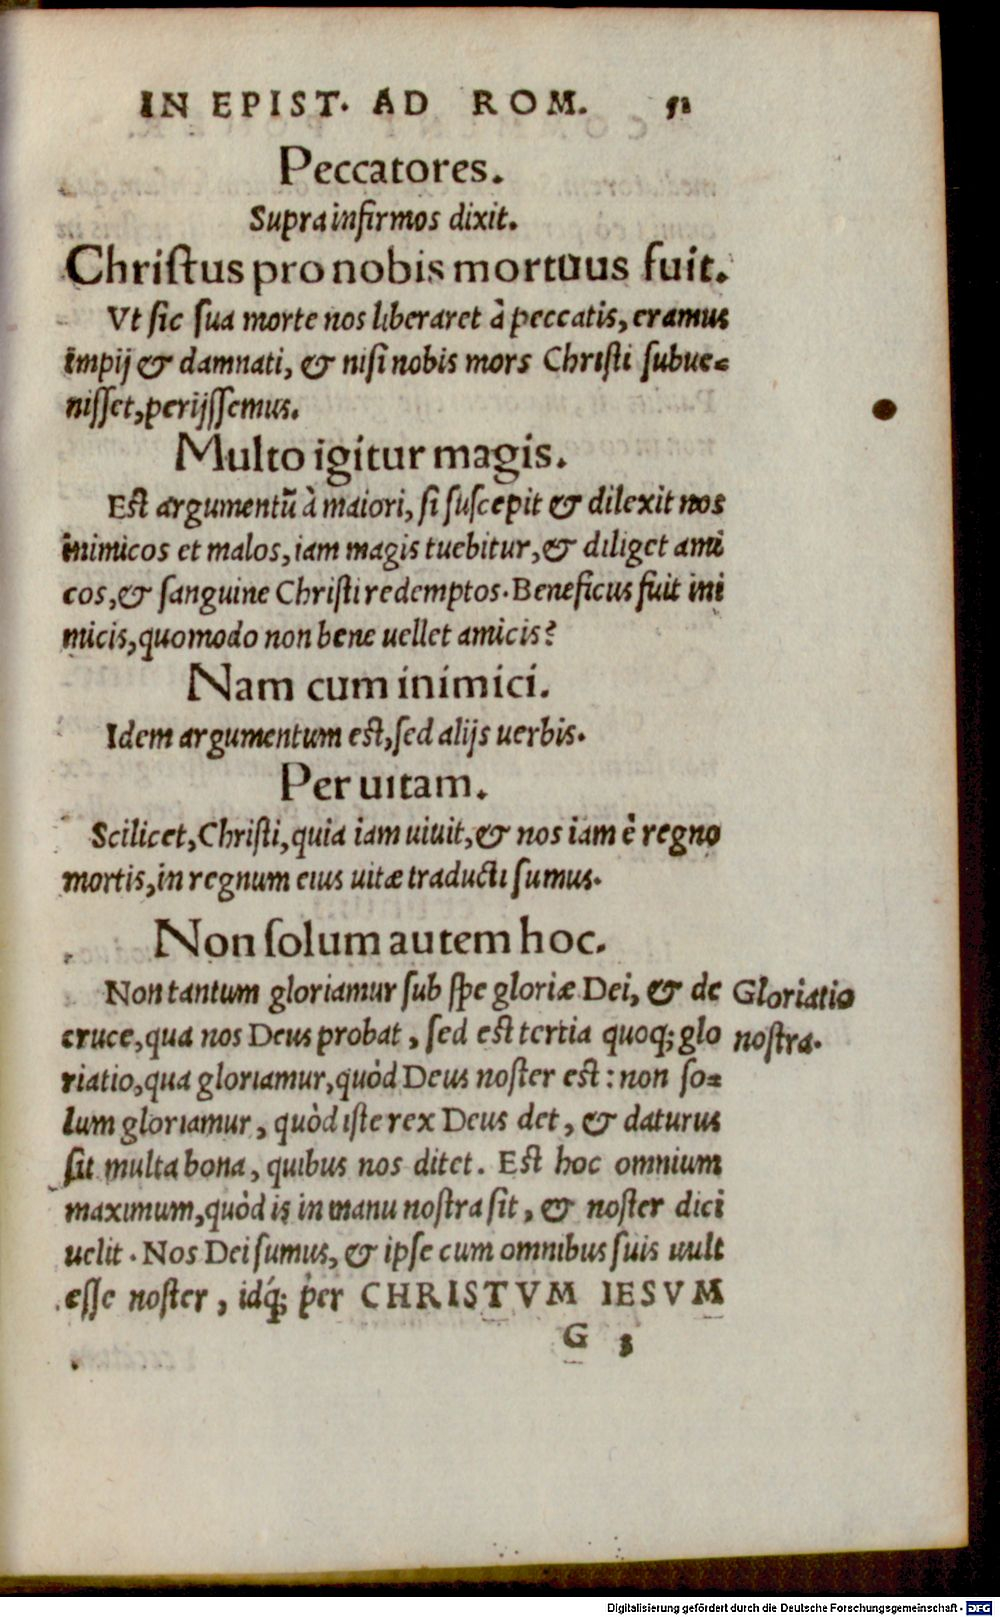 IN EPIST. AD ROM. 51
Peccatores.
Supra infirmos dixit.
Chriſtus pro nobis mortuus fuit.
Vt ſic ſua morte nos liberaret à peccatis, eramus
impij & damnati, & niſi nobis mors Chriſti ſubue=
niſſet, perijſſemus.
Multo igitur magis.
Eſt argumentũ à maiori, ſi ſuſcepit & dilexit nos
inimicos et malos, iam magis tuebitur, & diliget ami
cos, & ſanguine Chriſti redemptos. Beneficus fuit ini
micis, quomodo non bene uellet amicis?
Nam cum inimici.
Idem argumentum eſt, ſed alijs uerbis.
Per uitam.
Scilicet, Chriſti, quia iam uiuit, & nos iam è regno
mortis, in regnum eius uitæ traducti ſumus.
Non ſolum autem hoc.
Non tantum gloriamur ſub ſpe gloriæ Dei, & de
cruce, qua nos Deus probat, ſed eſt tertia quoq; glo
riatio, qua gloriamur, quòd Deus noſter eſt: non ſo=
lum gloriamur, quòd iſte rex Deus det, & daturus
ſit multa bona, quibus nos ditet. Eſt hoc omnium
maximum, quòd is in manu noſtra ſit, & noſter dici
uelit. Nos Dei ſumus, & ipſe cum omnibus ſuis uult
eſſe noſter, idq́; per CHRISTVM IESVM
Gloriatio
noſtra.
G 3
Digitalisierung gefördert durch die Deutsche Forschungsgemeinschaft - DFG